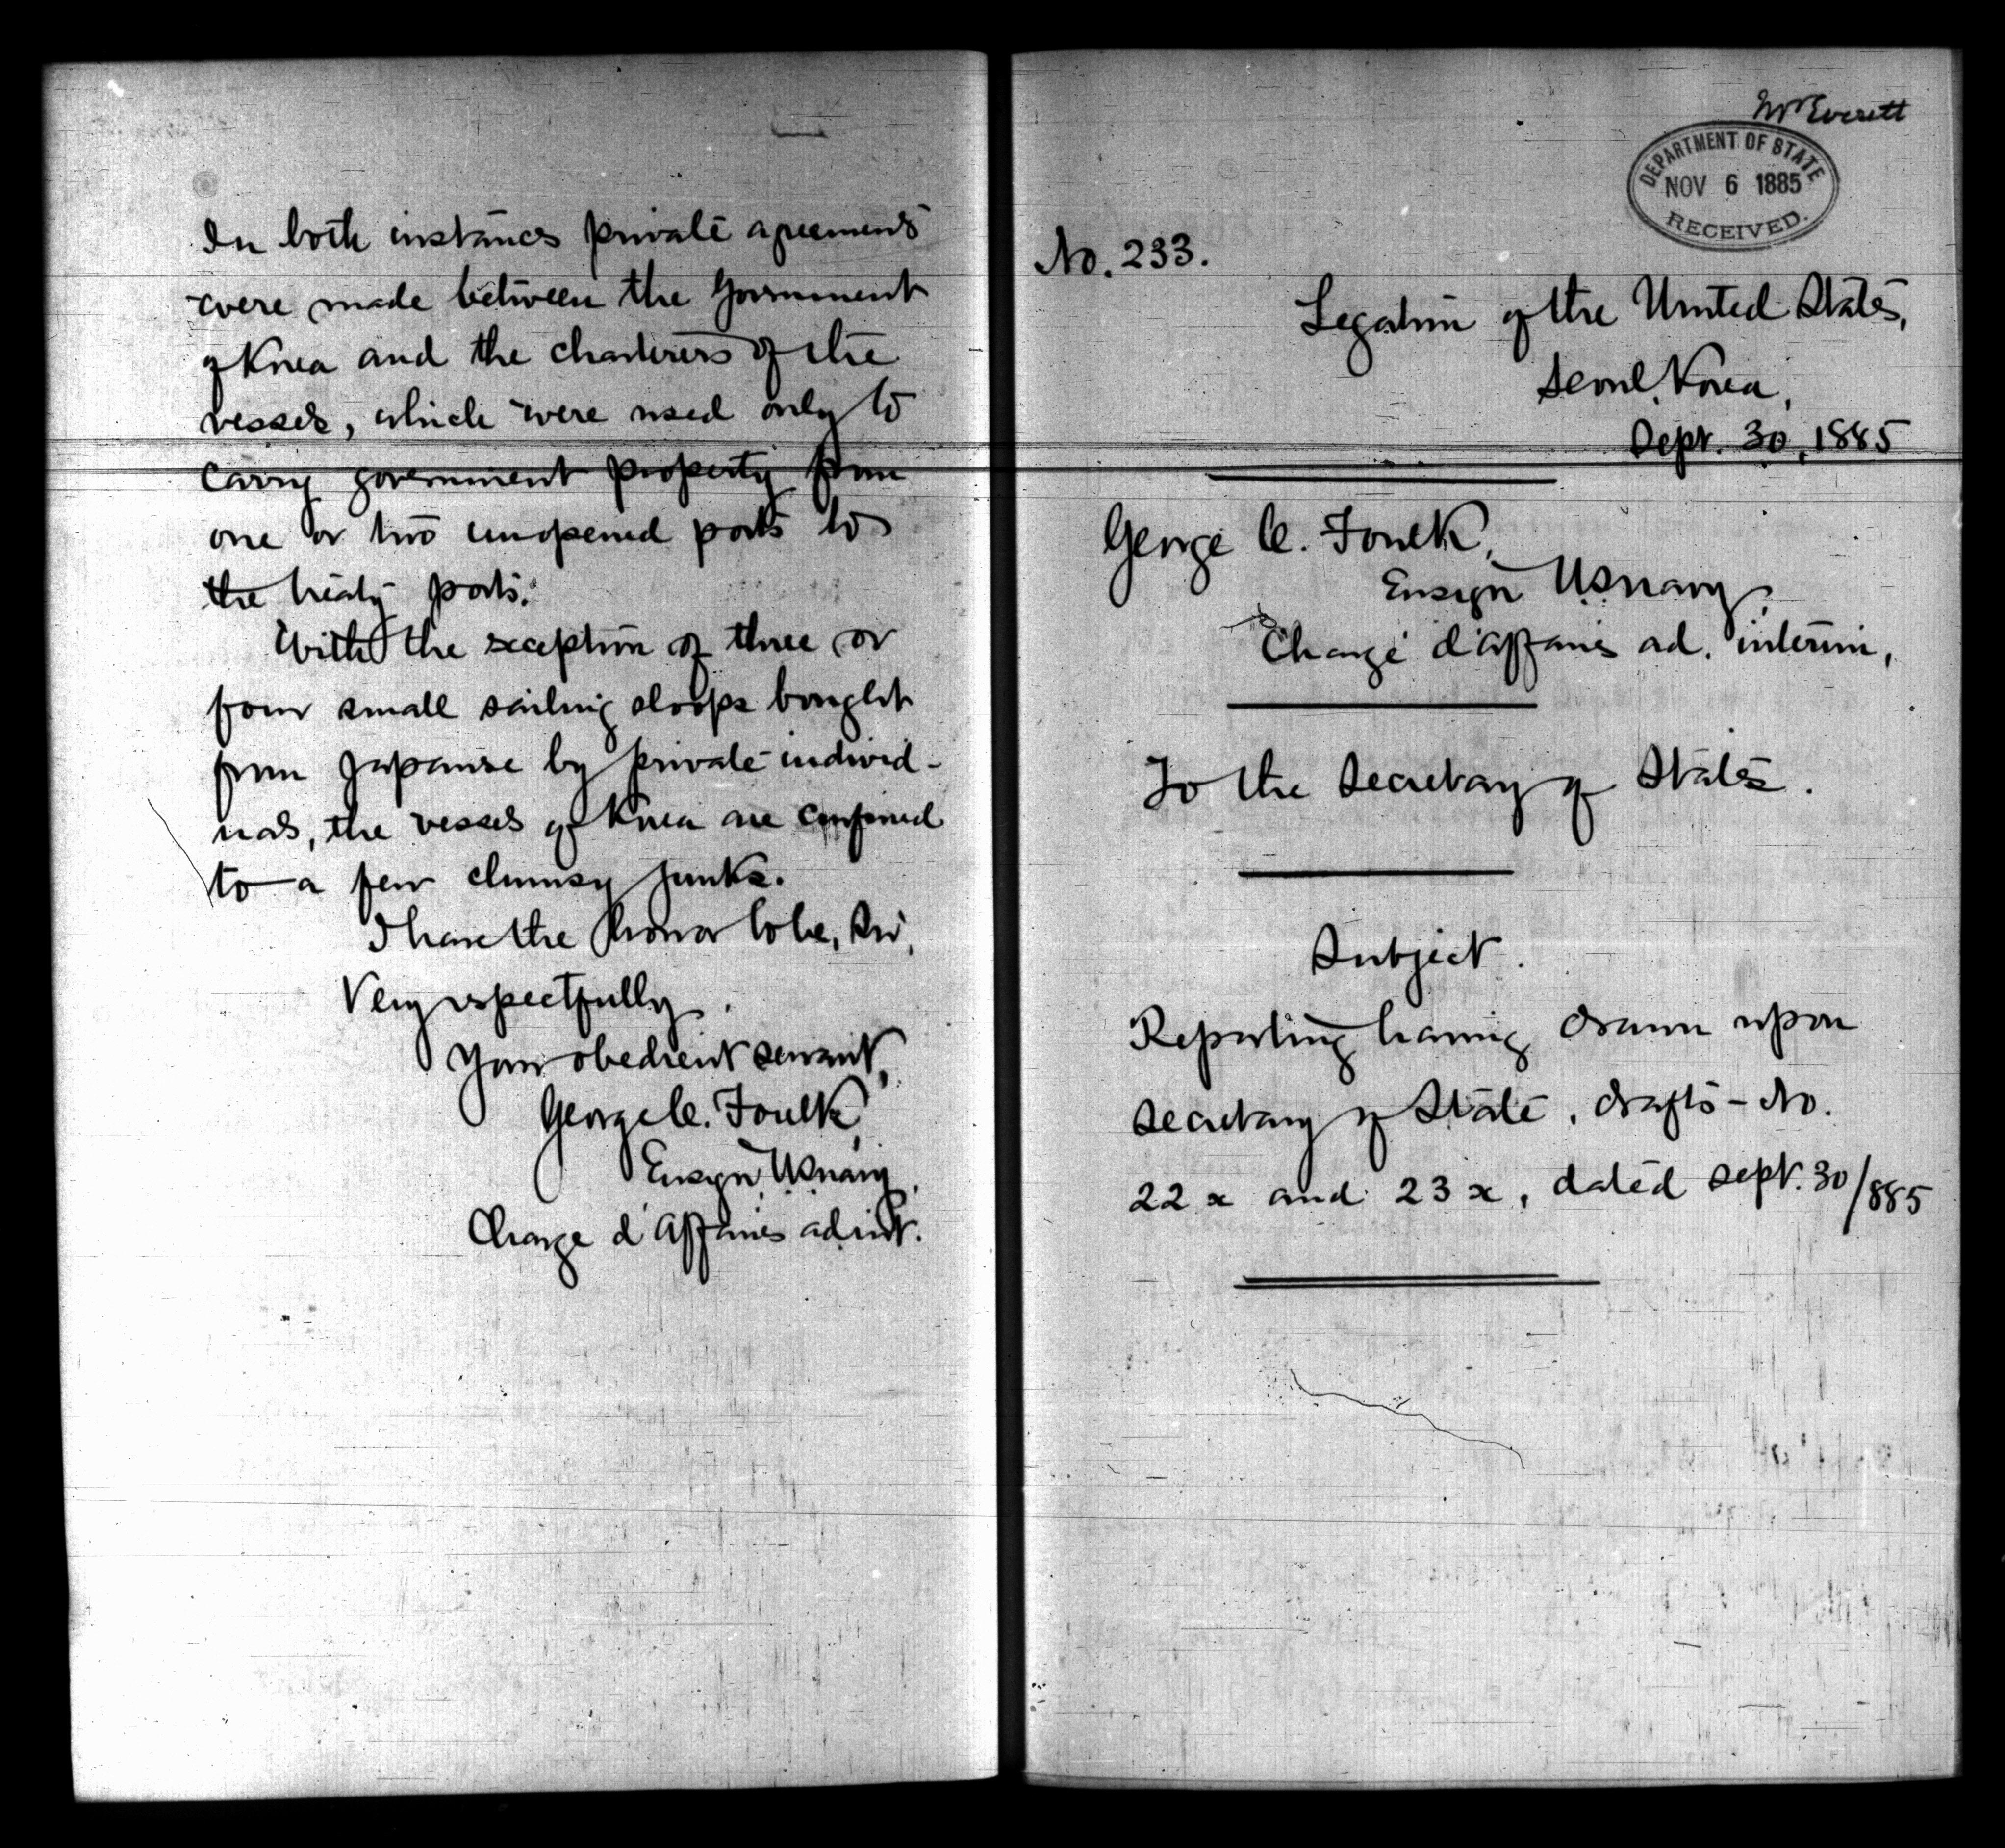 In both instances private agreements
were made between the Government
of Korea and the charterers of the
vessels, which were used only to
carry government property from
one or two unopened ports to
the treaty ports.
With the exception of three or
four small sailing sloops bought
from Japanese by private individ-
uals, the vessels of Korea are confined
to a few clumsy junks.
I have the honor to be, Sir,
Very respectfully,
Your obedient servant,
George C. Foulk,
Ensign, U.S. Navy,
Charge d'Affaires ad int.
Mr Everett
DEPARTMENT OF STATE
NOV 6 1885
RECEIVED.
No. 233.
Legation of the United States,
Seoul, Korea,
Sept. 30, 1885
George C. Foulk,
Ensign U.S. Navy,
Chargé d'affaires ad. interim,
To the Secretary of State.
Subject.
Reporting having drawn upon
Secretary of State, drafts - No.
22 x and 23 x, dated Sept. 30/885